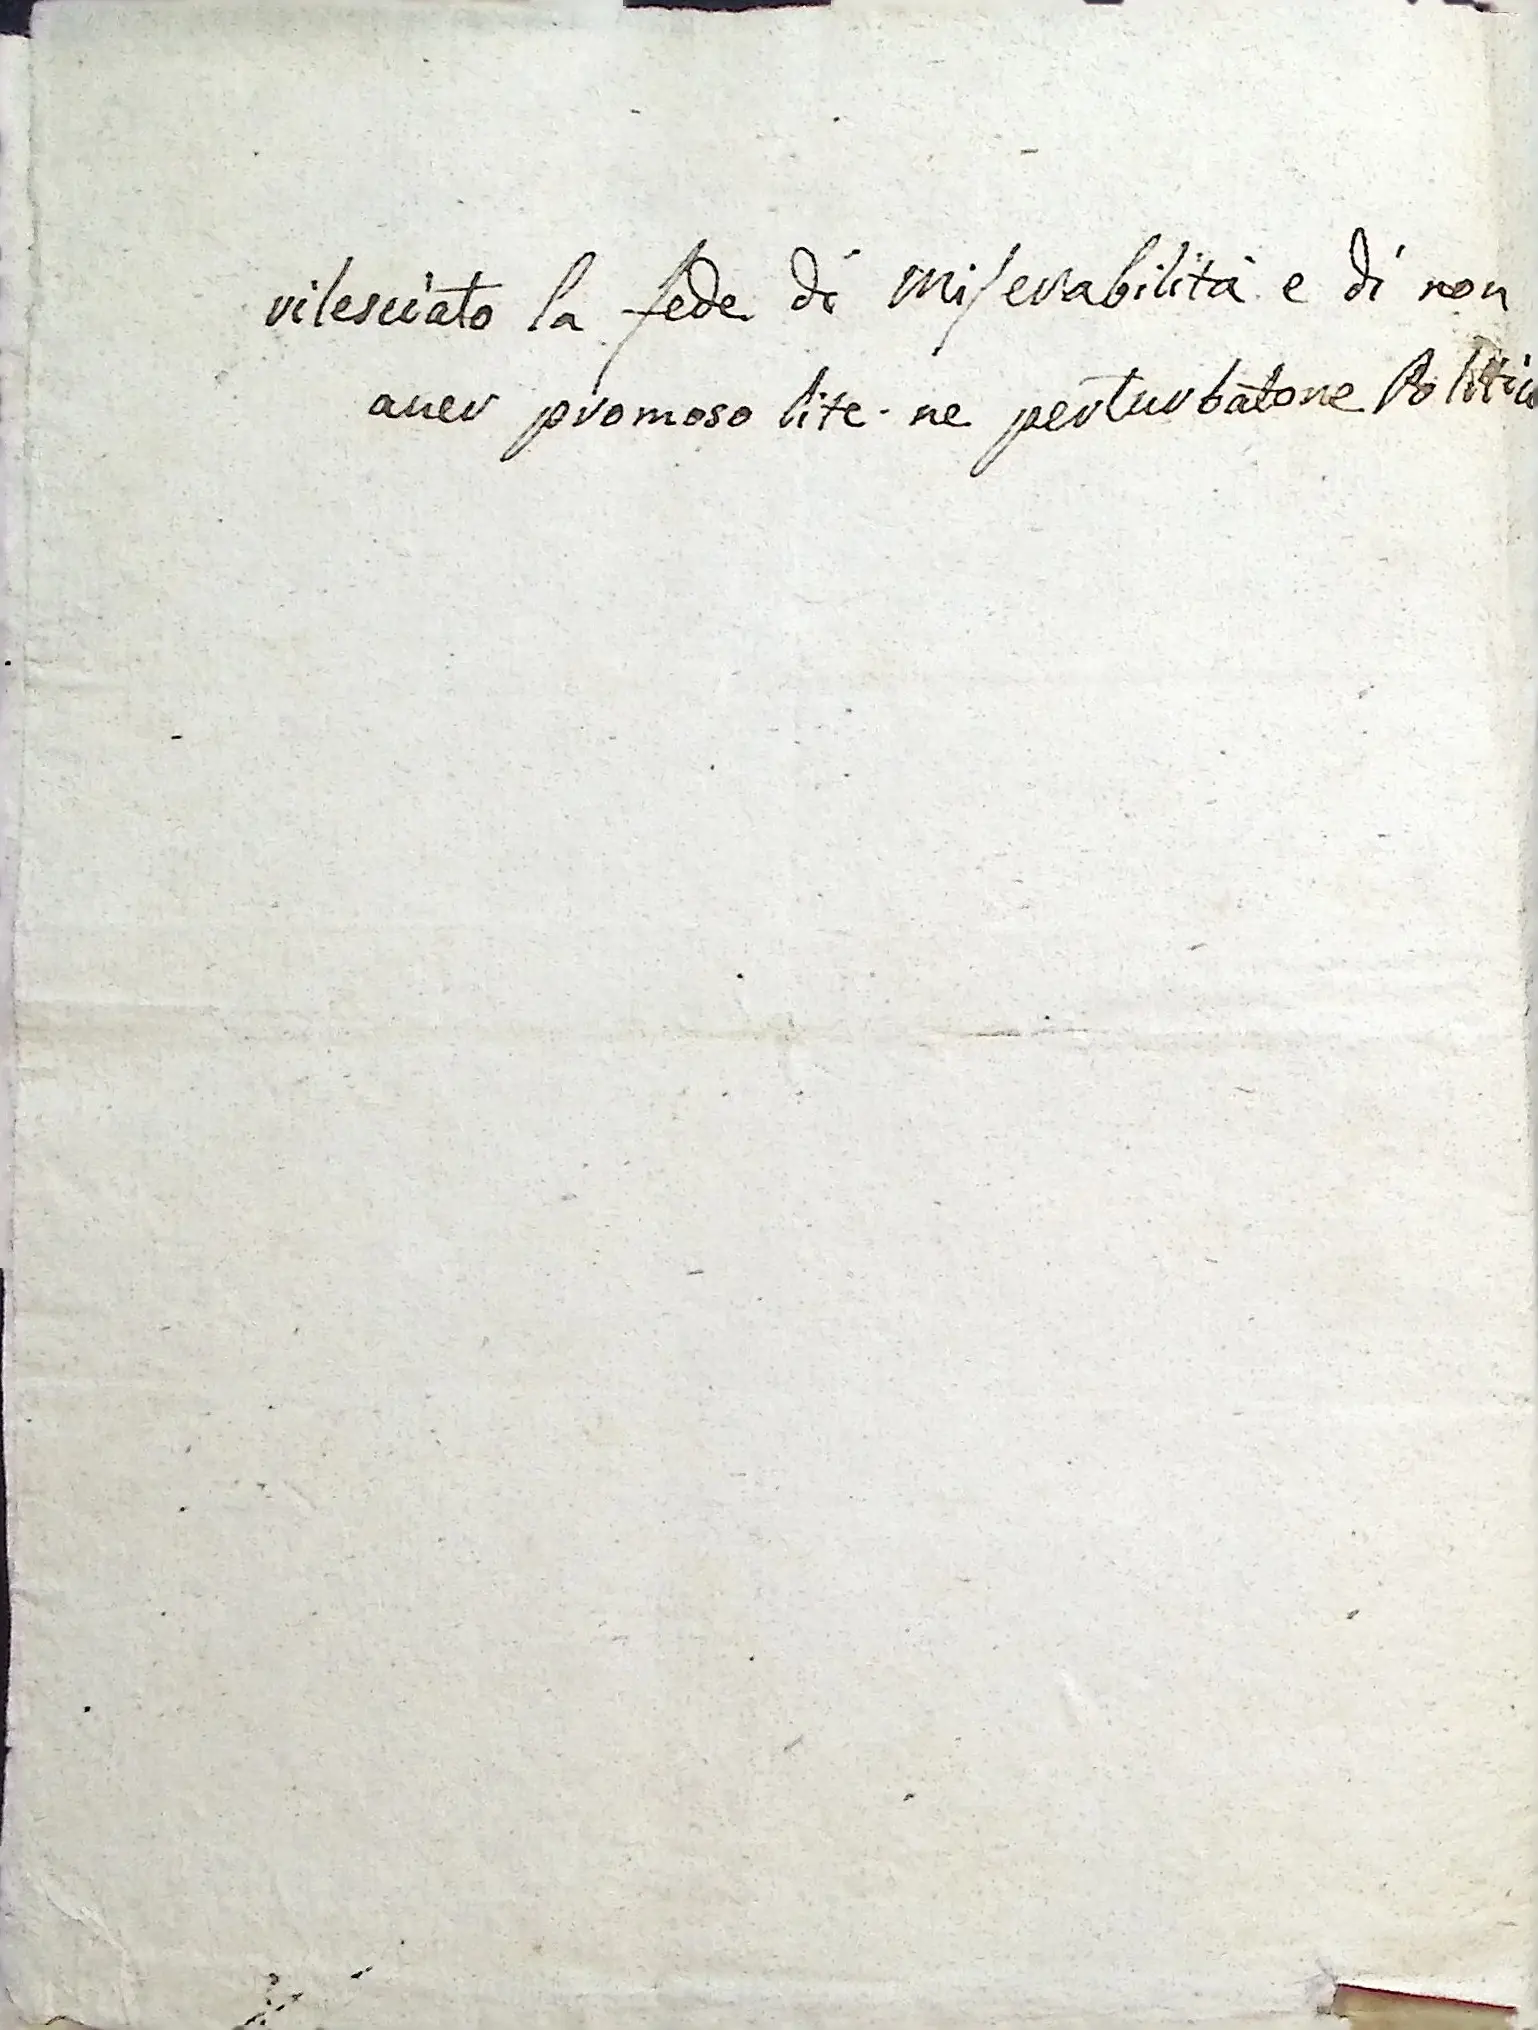 rilesciato la fede di miserabilità e di non
auer promoso lite ne perturbatone Politica